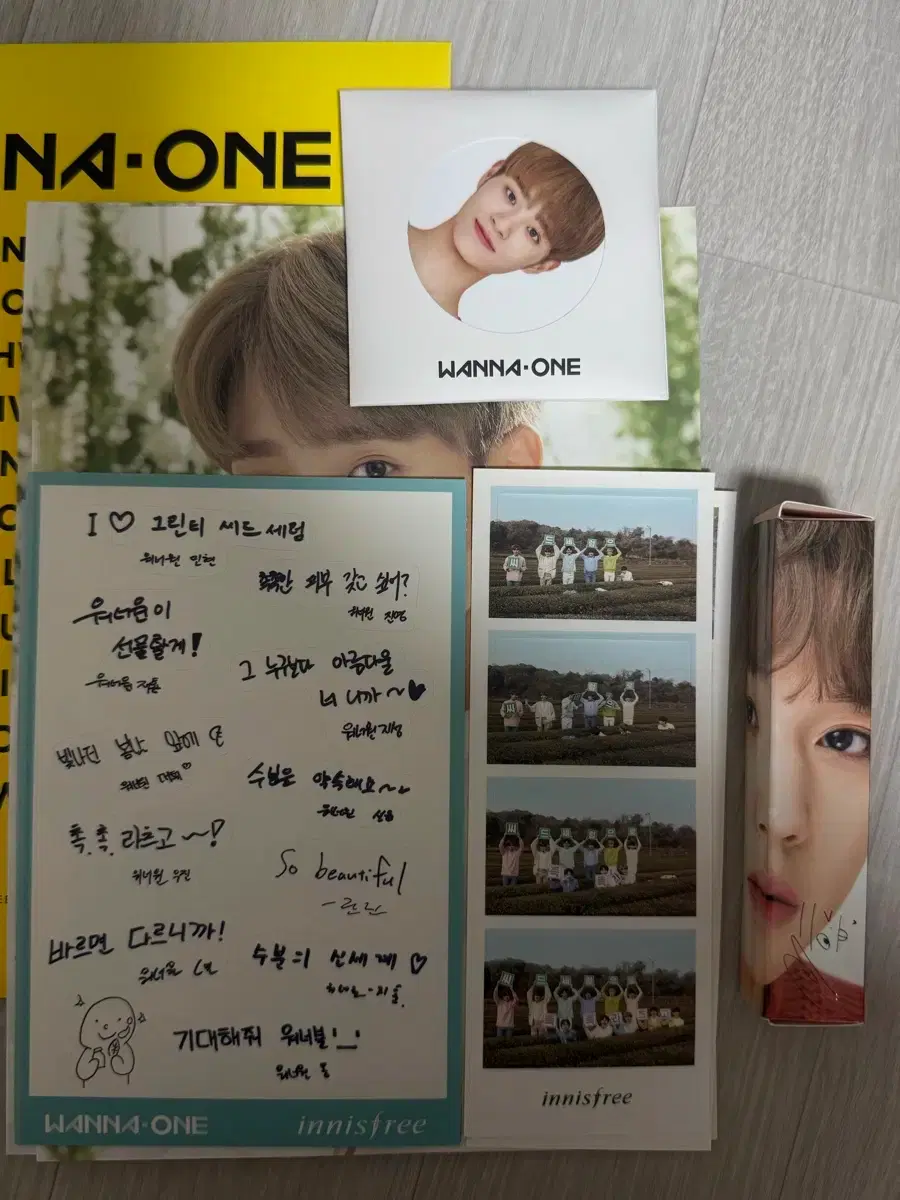 NA·ONE
WANNA·ONE
I ♡ 그린티 씨드 세럼
워너원 민현
피부 갖고 싶어?
워너원 진영
워너원이
선물할게!
그 누구보다 아름다울
너니까~♥
워너원 재성
빛나던 봄날 앞에
워너원 대휘♡
수분은 약속해요~
워너원 성운
촉.촉.리츠고~!
워너원 우진
So beautiful
바르면 다르니까!
워너원
수분의 신세계 ♡
기대해줘 워너블!
워너원
WANNA·ONE
innisfree
innisfree